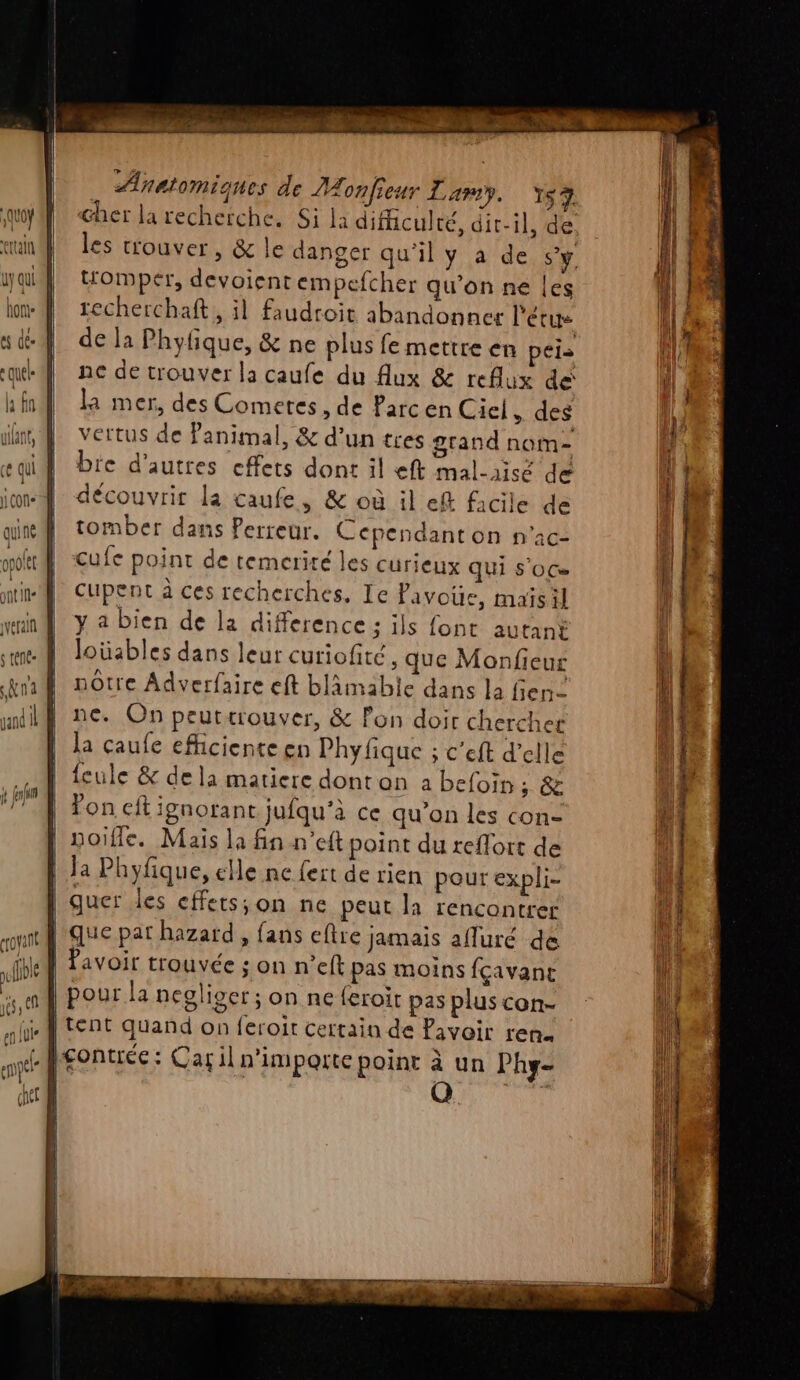 Anatomiques de Monſieur Lamy. 153
cher la recherche. Si la difficulté, dit-il, de
les trouver, & le danger qu'il y a de s'y
tromper, devoient empeſcher qu'on ne les
recherchaſt, il faudroit abandonner l'étu-
de la Phyſique, & ne plus ſe mettre en pei-
ne de trouver la cauſe du flux & reflux de
la mer, des Cometes, de l'arc en Ciel, des
vertus de l'animal, & d'un tres grand nom-
bre d'autres effets dont il eſt mal-aisé de
découvrir la cauſe, & où il eſt facile de
tomber dans l'erreur. Cependant on n'ac-
cuſe point de temerité les curieux qui s'oc-
cupent à ces recherches. Ie l'avoüe, mais il
y a bien de la difference ; ils ſont autant
loüables dans leur curioſité, que Monſieur
nôtre Adverſaire eſt blâmable dans la ſien-
ne. On peut trouver, & l'on doit chercher
la cauſe efficiente en Phyſique ; c'eſt d'elle
ſeule & de la matiere dont on a beſoin ; &
l'on eſt ignorant juſqu'à ce qu'on les con-
noiſſe. Mais la fin n'eſt point du reſſort de
la Phyſique, elle ne ſert de rien pour expli-
quer les effets; on ne peut la rencontrer
que par hazard, ſans eſtre jamais aſſuré de
l'avoir trouvée ; on n'eſt pas moins ſçavant
pour la negliger ; on ne ſeroit pas plus con-
tent quand on ſeroit certain de l'avoir ren-
contrée : Car il n'importe point à un Phy-
Q